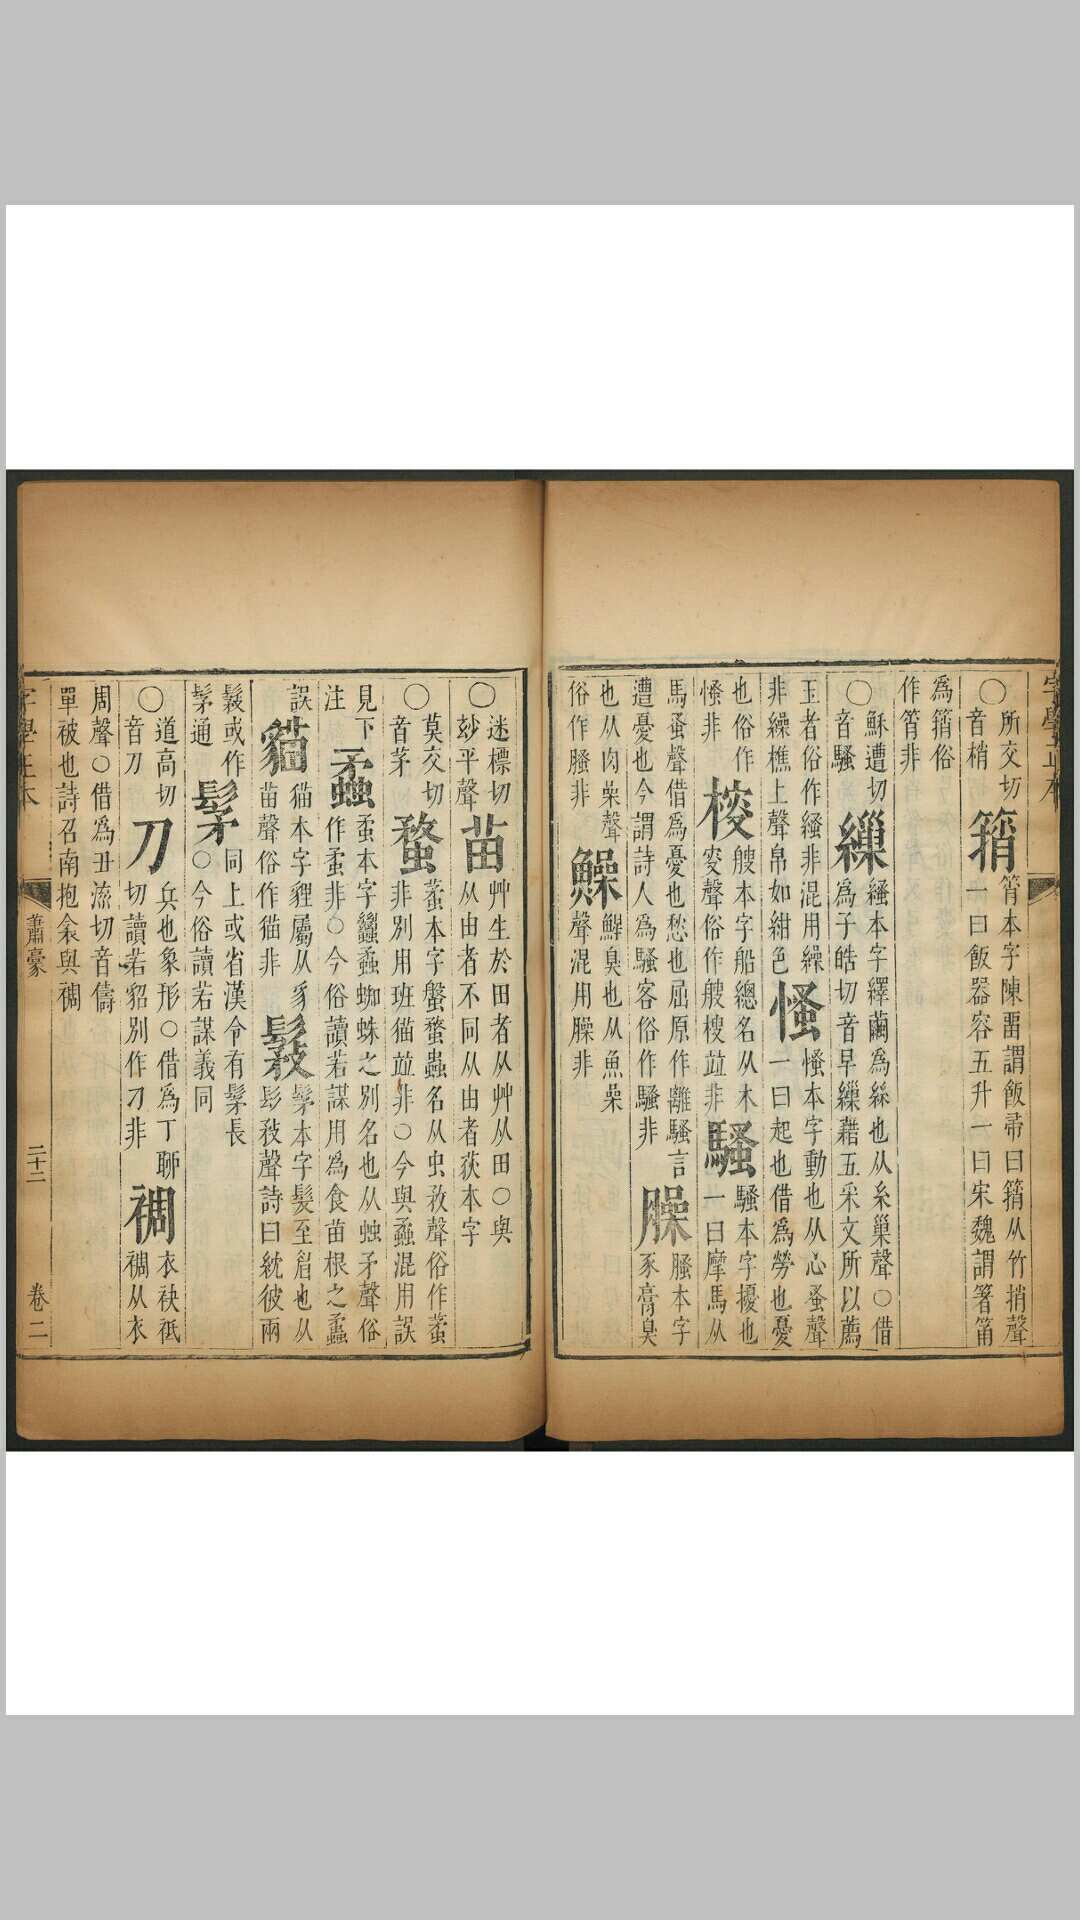 字學正本
○所交切
音梢
䈰
筲本字陳畱謂飯帚曰䈰从竹捎聲
一曰飯器容五升一曰宋魏謂箸筩
為䈰俗
作筲非
○穌遭切
音騷
繅
繅本字繹繭為絲也从糸巢聲○借
為子皓切音早繅藉五采文所以薦
玉者俗作繅非混用繰
非繰樵上聲帛如紺色
慅
慅本字動也从心蚤聲
一曰起也借為勞也憂
也俗作
慅非
艘本字船總名从木
叜聲俗作艘梭竝非
騷
騷本字擾也
一曰摩馬从
馬蚤聲借為憂也愁也屈原作離騷言
遭憂也今謂詩人為騷客俗作騷非
臊
臊本字
豕膏臭
也从肉喿聲
俗作臊非
鱢
鮏臭也从魚喿
聲混用臊非
○迷標切
玅平聲
苗
艸生於田者从艸从田○與
从由者不同从由者荻本字
○莫交切
音茅
蝥
蟊本字盤蝥蟲名从虫敄聲俗作蟊
非別用班猫竝非○今與蟊混用誤
見下
注
蟊
蟊本字蠿蟊蜘蛛之別名也从䖵矛聲俗
作蟊非○今俗讀若謀用為食苗根之蟊
誤
貓
猫本字貍屬从豸
苗聲俗作猫非
髳
髦本字髮至眉也从
髟敄聲詩曰紞彼兩
髳或作
髳通
髳
同上或省漢令有髳長
○今俗讀若謀義同
○道高切
音刀
刀
兵也象形○借為丁聊
切讀若貂別作刁非
裯
衣袂袛
裯从衣
周聲○借為丑流切音儔
單被也詩召南抱衾與裯
字學正本
蕭豪
二十二
卷二